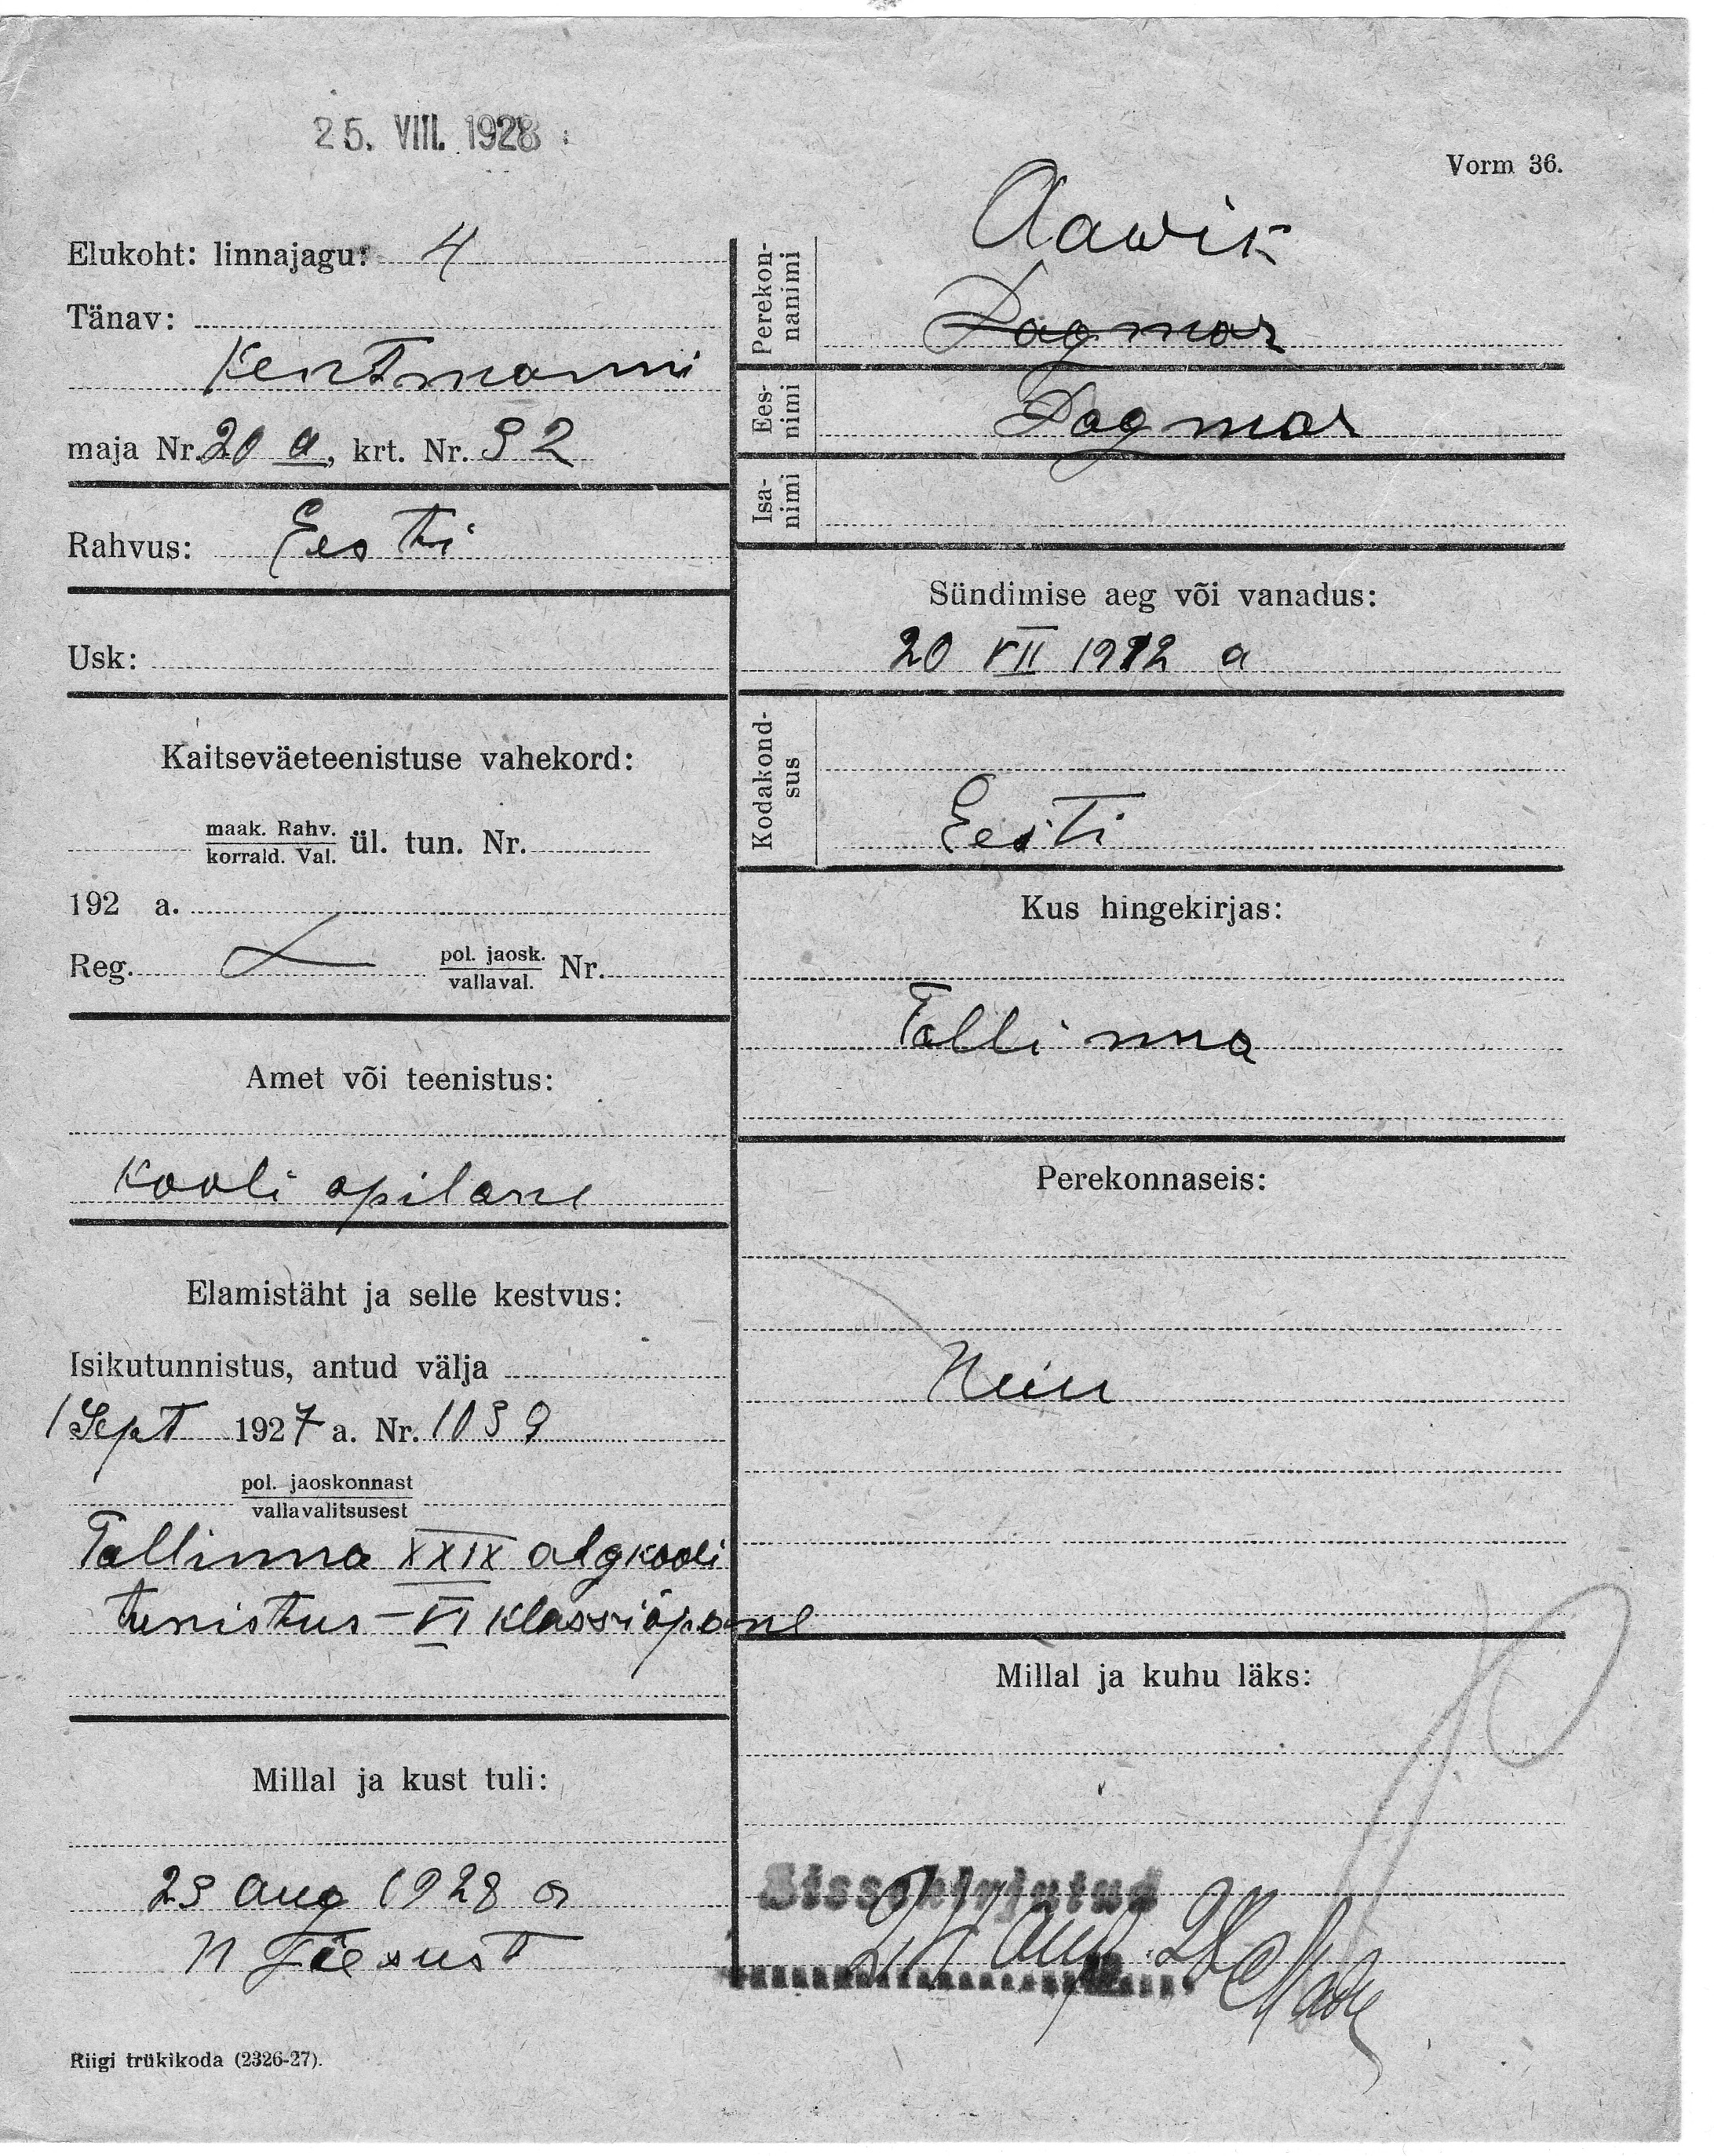 25. VIII. 1928
Vorm 36.
Elukoht: linnajagu: 4
Tänav:
Kentmanni
maja Nr. 20 a, krt. Nr. 32
Rahvus: Eesti
Usk:
Kaitseväeteenistuse vahekord:
maak. Rahv.
korrald. Val. ül. tun. Nr.
192 a.
Reg. pol. jaosk.
vallaval. Nr.
Amet või teenistus:
Kooli opilane
Elamistäht ja selle kestvus:
Isikutunnistus, antud välja
1 Sept 1927 a. Nr. 1039
pol. jaoskonnast
vallavalitsusest
Tallinna XXIX algkooli
tunistus – VI klassi
Millal ja kust tuli:
23 aug 1928 a
Riigi trükikoda (2326-27).
Aawik
Perekon-
nanimi
Dagmar
Ees-
nimi
Dagmar
Isa-
nimi
Sündimise aeg või vanadus:
20 VII 1912 a
Kodakond-
sus
Eesti
Kus hingekirjas:
Tallinna
Perekonnaseis:
Neiu
Millal ja kuhu läks:
Sissekirjutud
Aug. 28